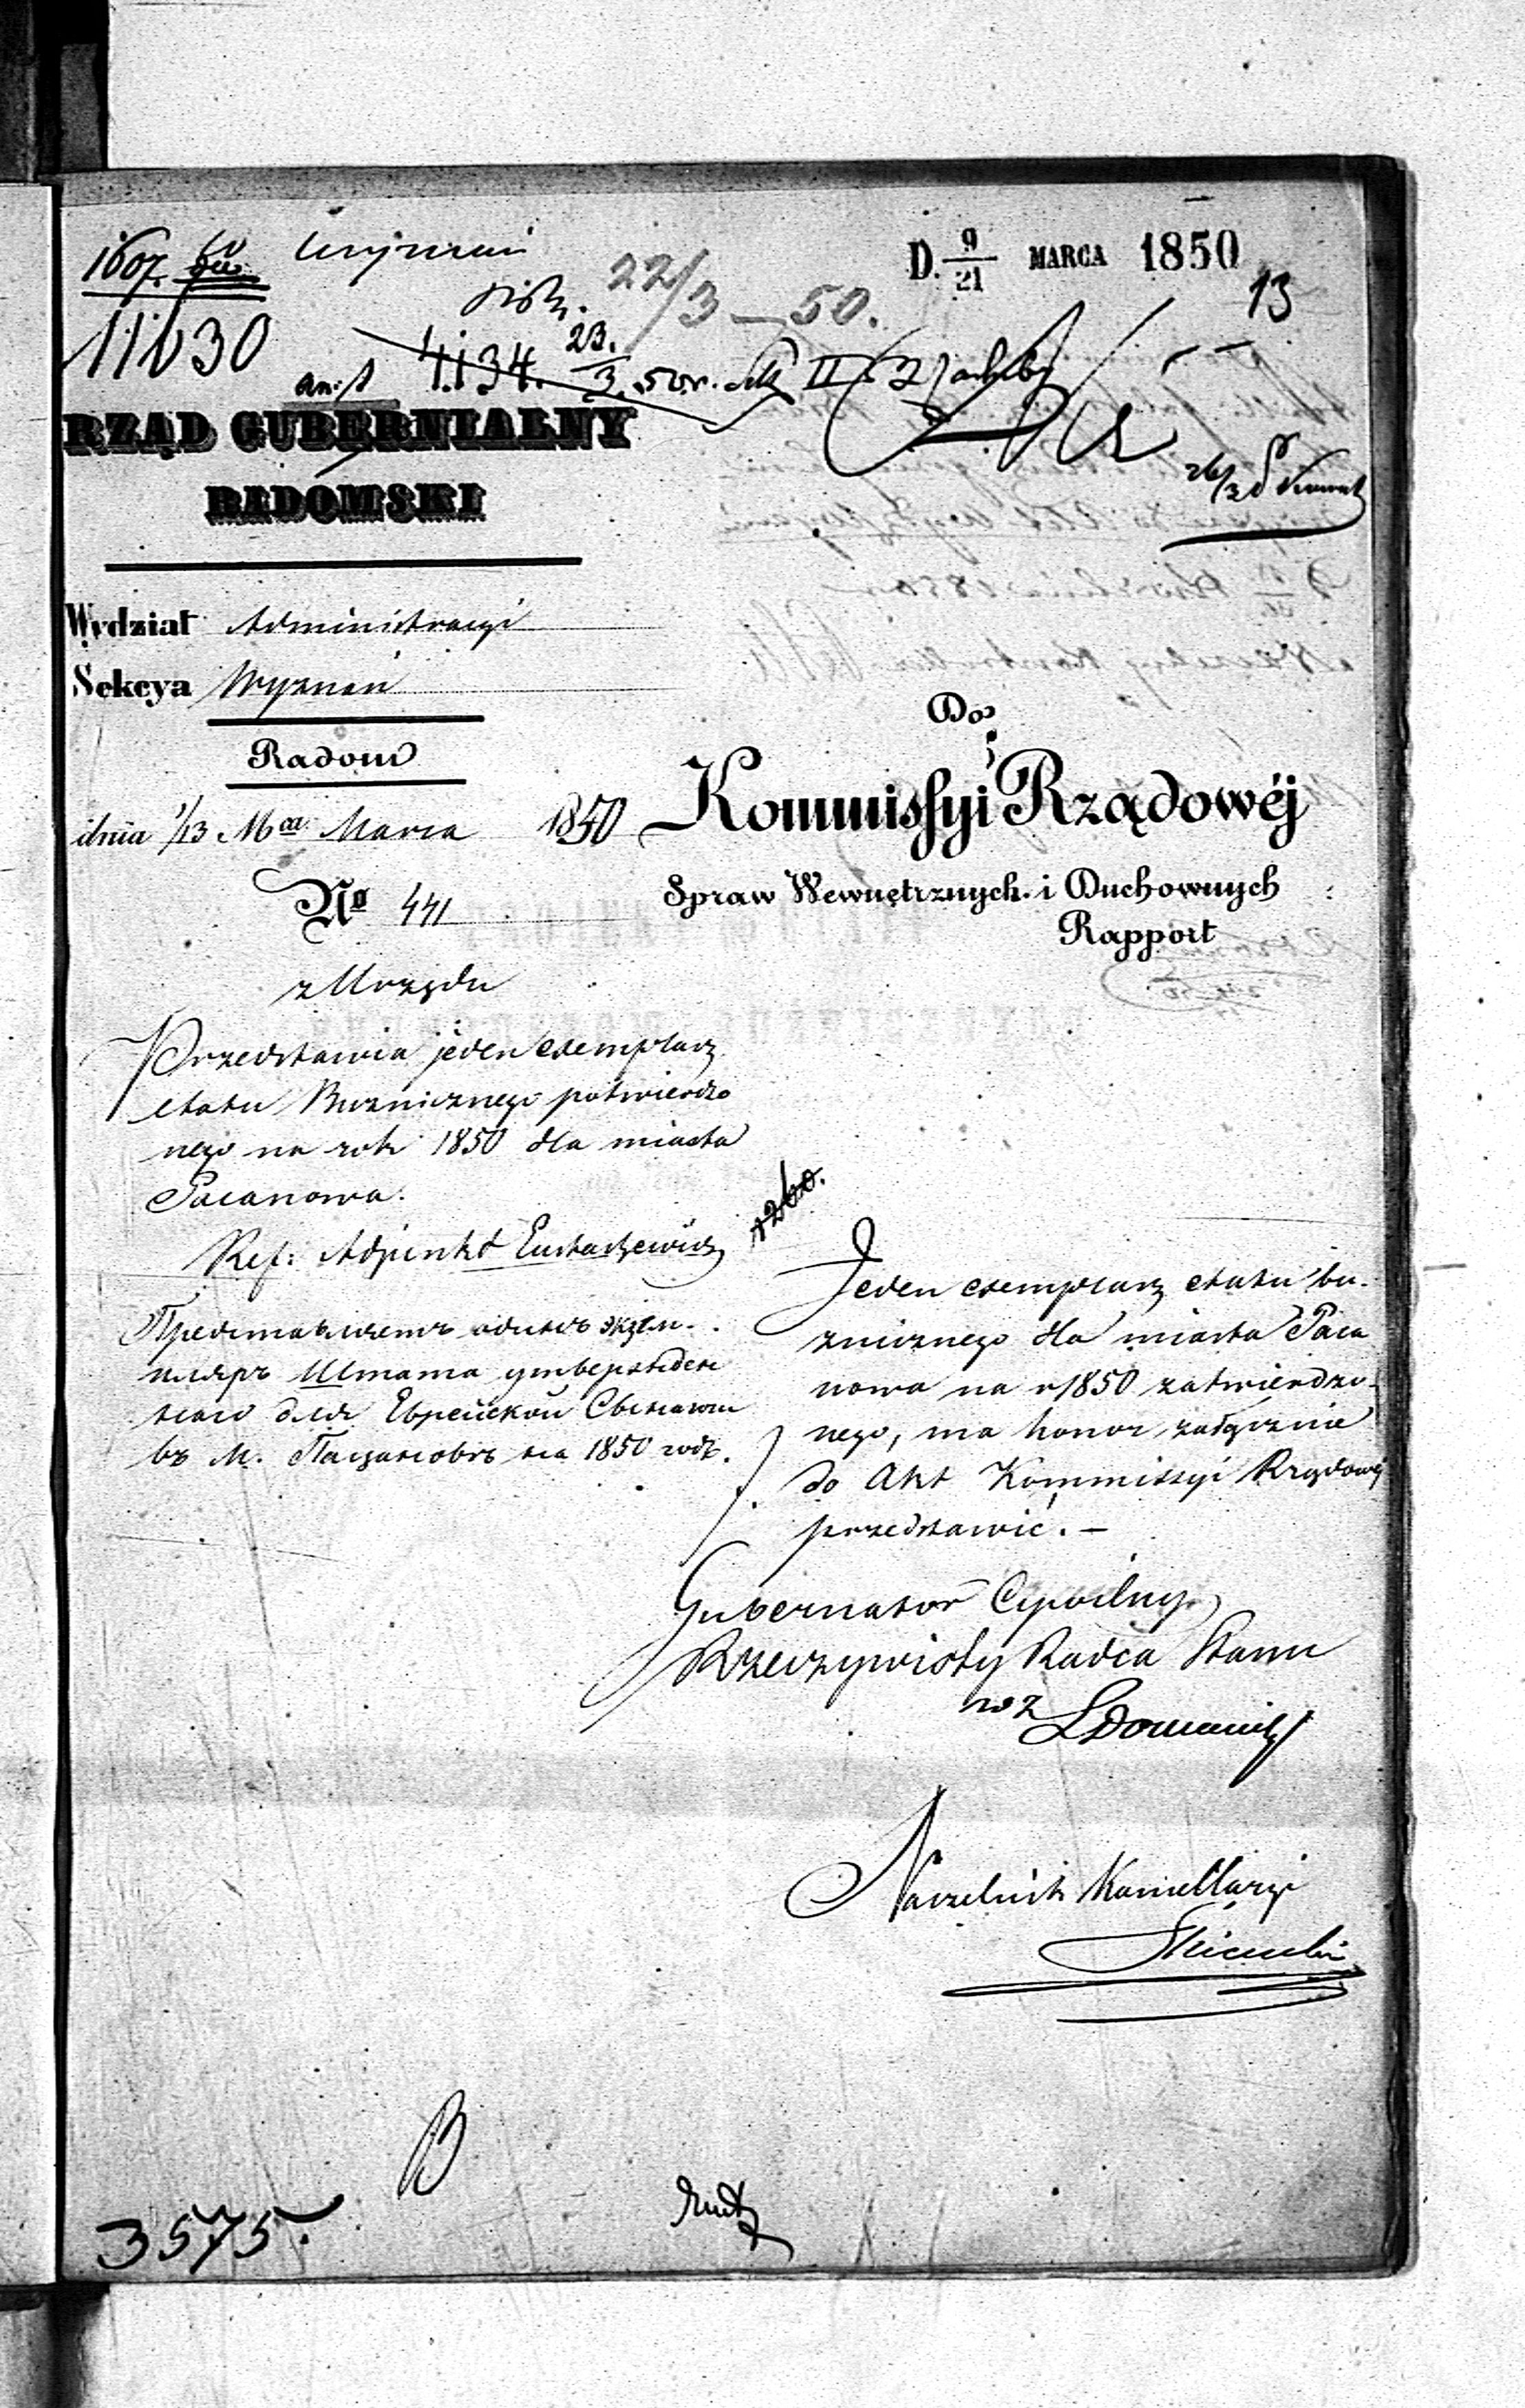 1607.
D. 9/21 MARCA 1850
13
22/3 — 50.
11030
4134. 23./3. 50 r.
RZĄD GUBERNIALNY
RADOMSKI
Wydział Administracyi
Sekcya Wyznań
Radom
dnia 1/13 Mca Marca 1850
No 441
Do
Kommissyi Rządowéj
Spraw Wewnętrznych i Duchownych
Rapport
z Urzędu
Przedstawia jeden exemplarz
etatu Buznicznego potwierdzo
nego na rok 1850 dla miasta
Pacanowa.
Ref: Adjunkt Eustachewicz
Представляетъ одинъ экзем-
пляръ Штата утвержден
наго для Еврейской Божницы
въ М. Пацановъ на 1850 годъ.
Jeden exemplarz etatu bu-
znicznego dla miasta Paca
nowa na r 1850 zatwierdzo-
nego, ma honor załącznie
do Akt Kommissyi Rządowéj
przedstawić. —
Gubernator Cywilny
Rzeczywisty Radca Stanu
Naczelnik Kancellaryi
B
3575.